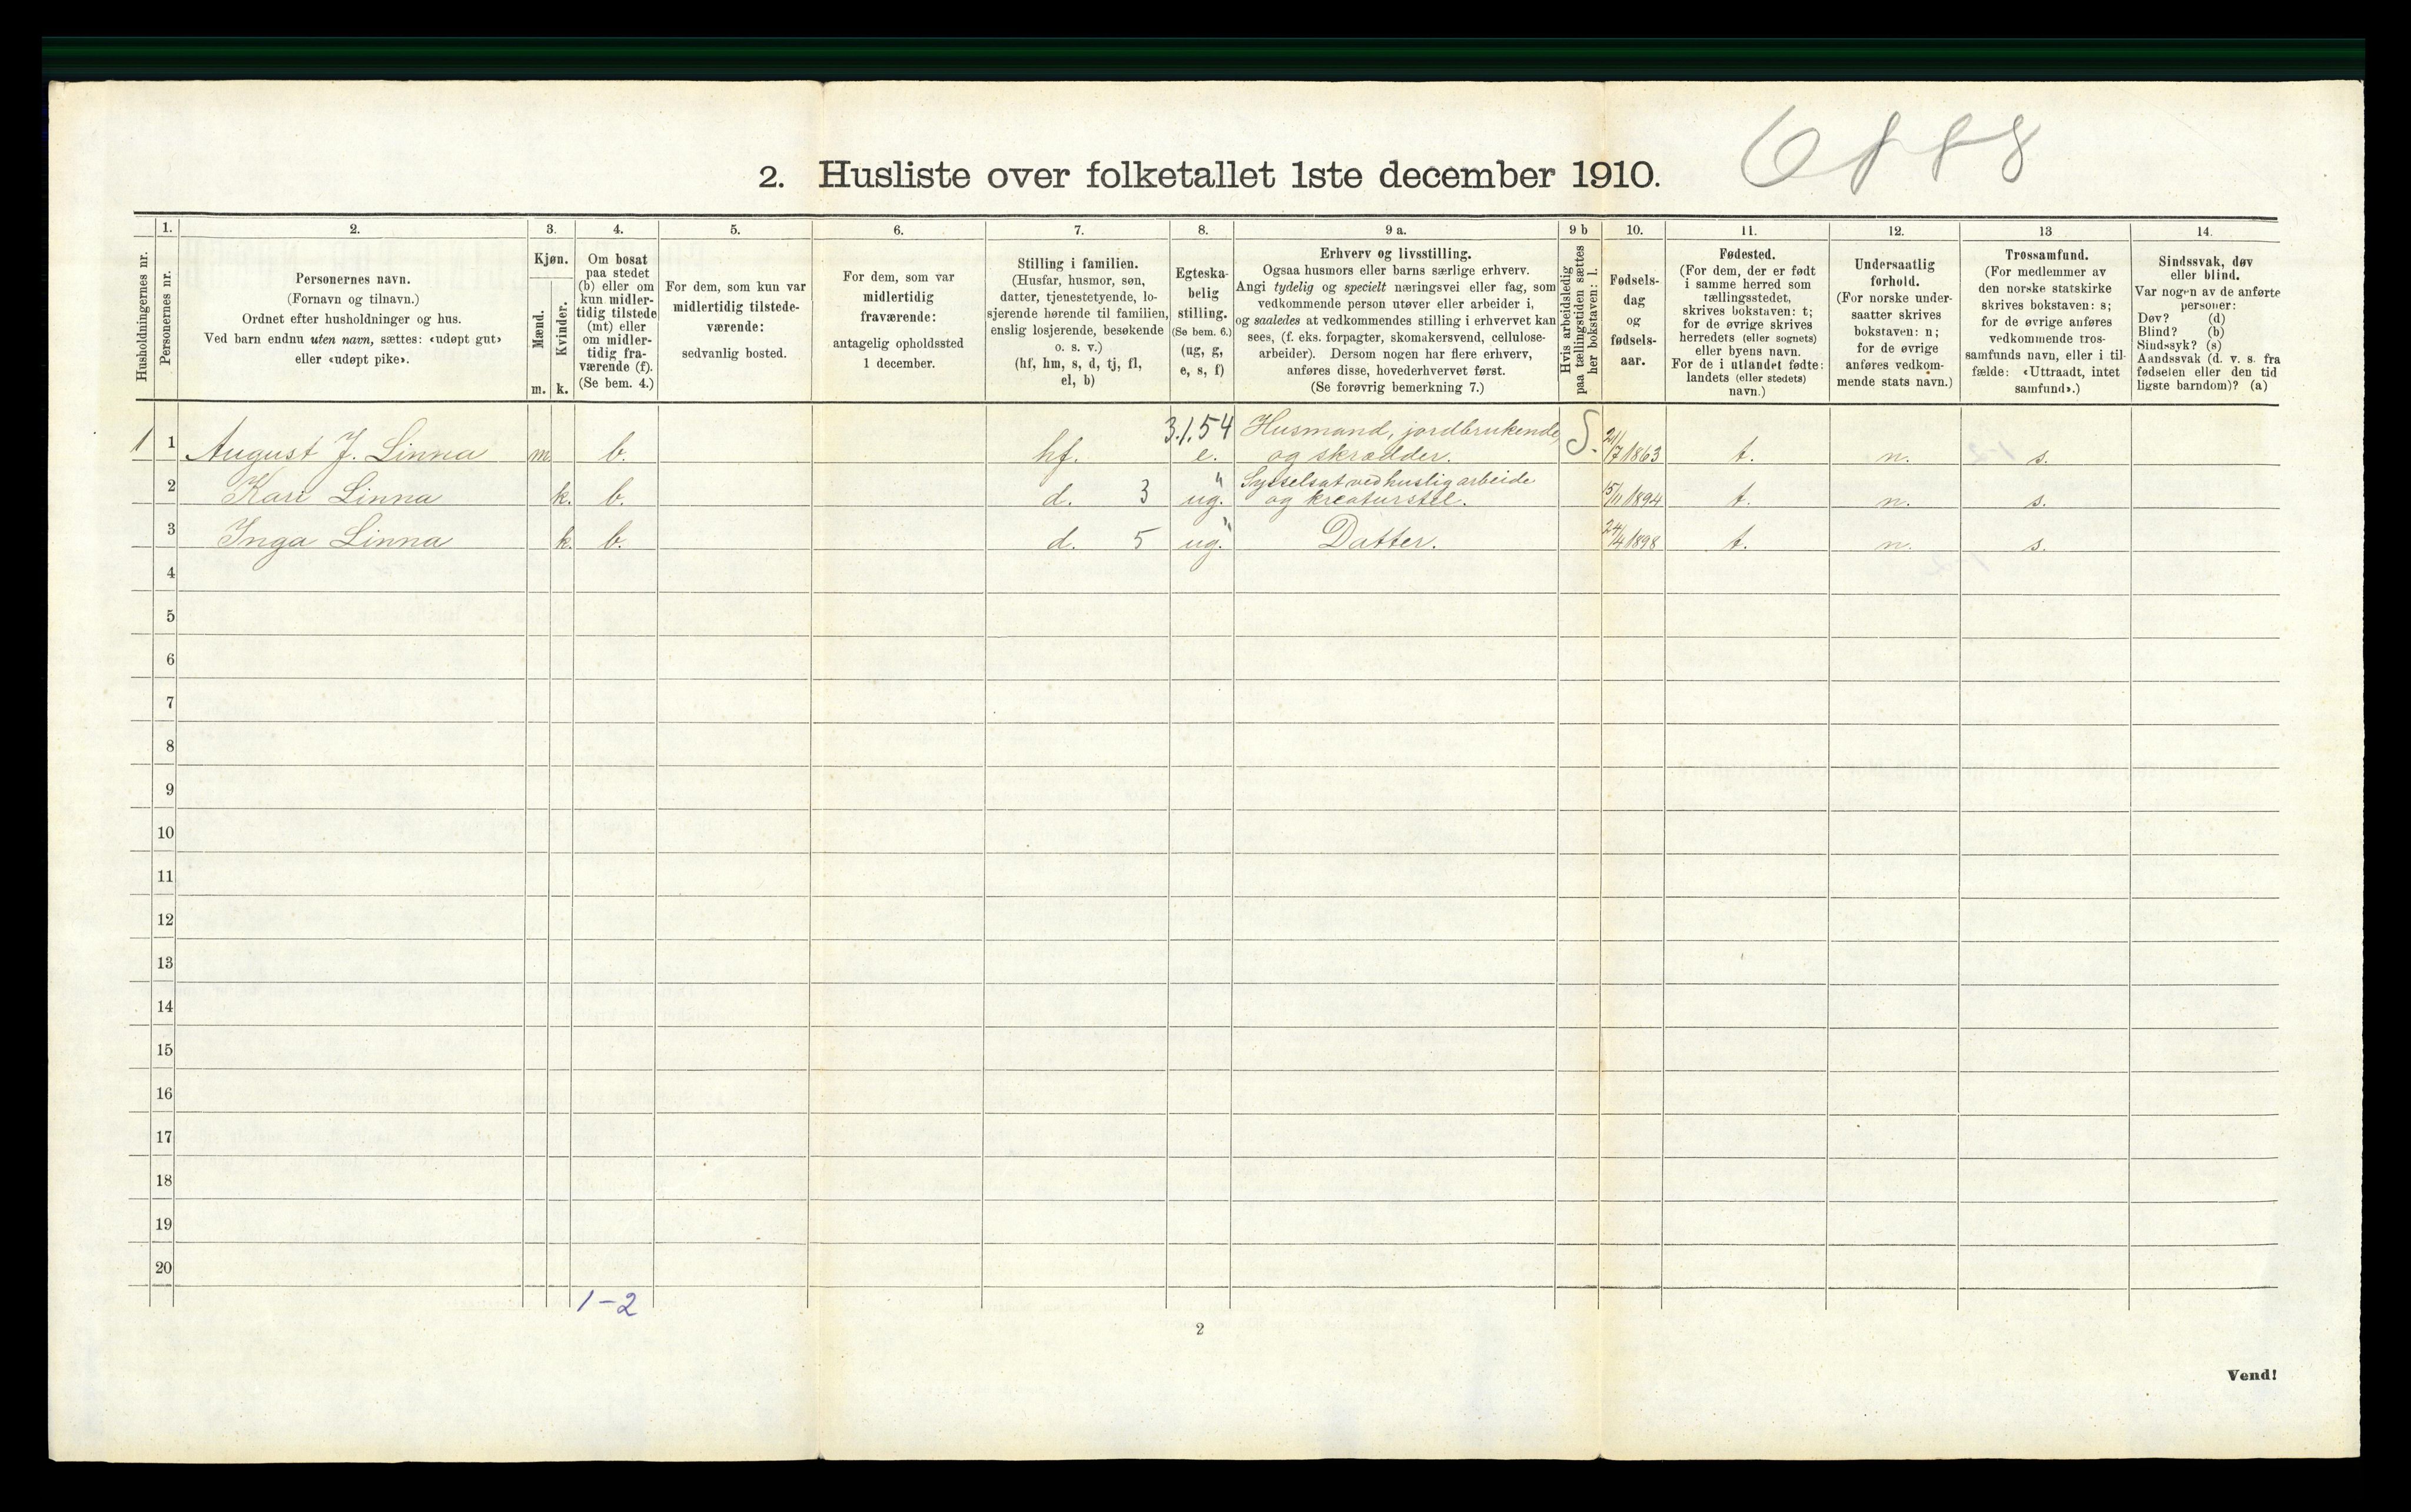 2. Husliste over folketallet 1ste december 1910.
Husholdningernes nr.
1.
Personernes nr.
2.
Personernes navn.
(Fornavn og tilnavn.)
Ordnet efter husholdninger og hus.
Ved barn endnu uten navn, sættes: «udøpt gut»
eller «udøpt pike».
3.
Kjøn.
Mænd.
Kvinder.
m. k.
4.
Om bosat
paa stedet
(b) eller om
kun midler-
tidig tilstede
(mt) eller
om midler-
tidig fra-
værende (f).
(Se bem. 4.)
5.
For dem, som kun var
midlertidig tilstede-
værende:
sedvanlig bosted.
6.
For dem, som var
midlertidig
fraværende:
antagelig opholdssted
1 december.
7.
Stilling i familien.
(Husfar, husmor, søn,
datter, tjenestetyende, lo-
sjerende hørende til familien,
enslig losjerende, besøkende
o. s. v.)
(hf, hm, s, d, tj, fl,
el, b)
8.
Egteska-
belig
stilling.
(Se bem. 6.)
(ug, g,
e, s, f)
9 a.
Erhverv og livsstilling.
Ogsaa husmors eller barns særlige erhverv.
Angi tydelig og specielt næringsvei eller fag, som
vedkommende person utøver eller arbeider i,
og saaledes at vedkommendes stilling i erhvervet kan
sees, (f. eks. forpagter, skomakersvend, cellulose-
arbeider). Dersom nogen har flere erhverv,
anføres disse, hovederhvervet først.
(Se forøvrig bemerkning 7.)
9 b
Hvis arbeidsledig
paa tællingstiden sættes
her bokstaven: l.
10.
Fødsels-
dag
og
fødsels-
aar.
11.
Fødested.
(For dem, der er født
i samme herred som
tællingsstedet,
skrives bokstaven: t;
for de øvrige skrives
herredets (eller sognets)
eller byens navn.
For de i utlandet fødte:
landets (eller stedets)
navn.)
12.
Undersaatlig
forhold.
(For norske under-
saatter skrives
bokstaven: n;
for de øvrige
anføres vedkom-
mende stats navn.)
13
Trossamfund.
(For medlemmer av
den norske statskirke
skrives bokstaven: s;
for de øvrige anføres
vedkommende tros-
samfunds navn, eller i til-
fælde: «Uttraadt, intet
samfund».)
14.
Sindssvak, døv
eller blind.
Var nogen av de anførte
personer:
Døv? (d)
Blind? (b)
Sindssyk? (s)
Aandssvak (d. v. s. fra
fødselen eller den tid
ligste barndom)? (a)
3.1.54 Husmand, jordbrukende,
1 1 August J. Linna m. b. hf. e. og skrædder. S. 21/7 1863 t. n. s.
Sysselsat ved huslig arbeide
2 Kari Linna k. b. d. 3 ug. " og kreaturstel. 15/11 1894 t. n. s.
3 Inga Linna k. b. d. 5 ug. " Datter. 24/4 1898 t. n. s.
4
5
6
7
8
9
10
11
12
13
14
15
16
17
18
19
20
1-2
2
Vend!